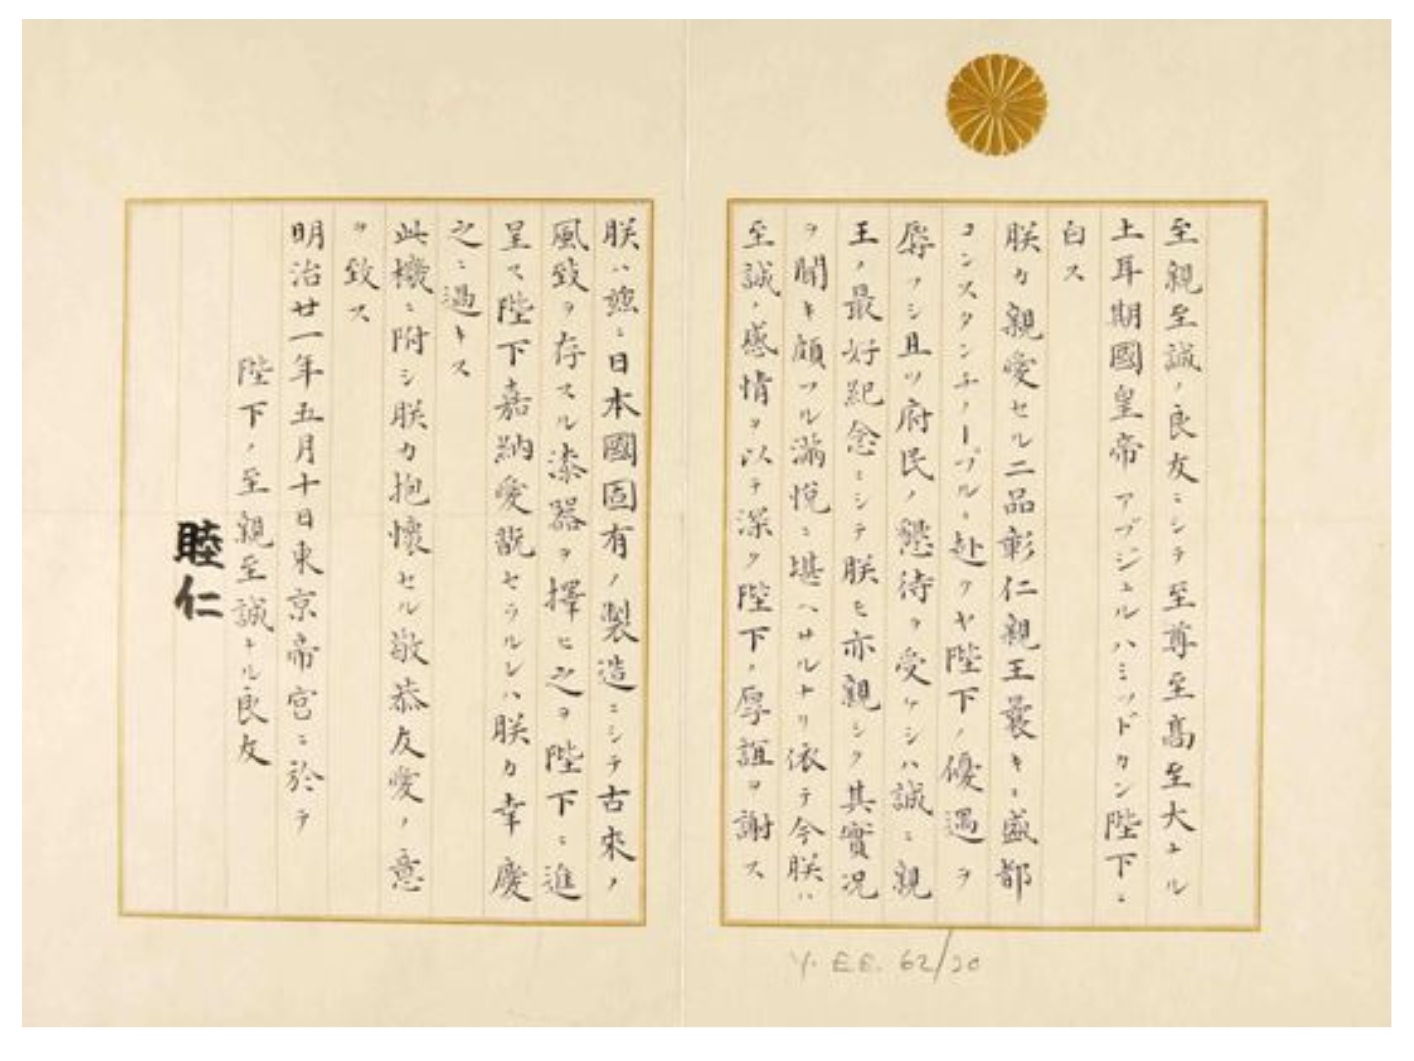 至親至誠ノ良友ニシテ至尊至高至大ナル
土耳期國皇帝アブジュルハミッドカン陛下ニ
白ス
朕カ親愛セル二品彰仁親王曩キニ盛都
コンスタンチノープルニ赴クヤ陛下ノ優遇ヲ
辱フシ且ツ府民ノ懇待ヲ受ケシハ誠ニ親
王ノ最好紀念ニシテ朕モ亦親シク其實況
ヲ聞キ頗フル滿悅ニ堪ヘサルナリ依テ今朕ハ
至誠ノ感情ヲ以テ深ク陛下ノ厚誼ヲ謝ス
朕ハ玆ニ日本國固有ノ製造ニシテ古來ノ
風致ヲ存スル漆器ヲ擇ヒ之ヲ陛下ニ進
呈ス陛下嘉納愛翫セラルレハ朕カ幸慶
之ニ過キス
此機ニ附シ朕カ抱懷セル敬恭友愛ノ意
ヲ致ス
明治廿一年五月十日東京帝宮ニ於テ
陛下ノ至親至誠ナル良友
睦仁
Y. EE. 62/20